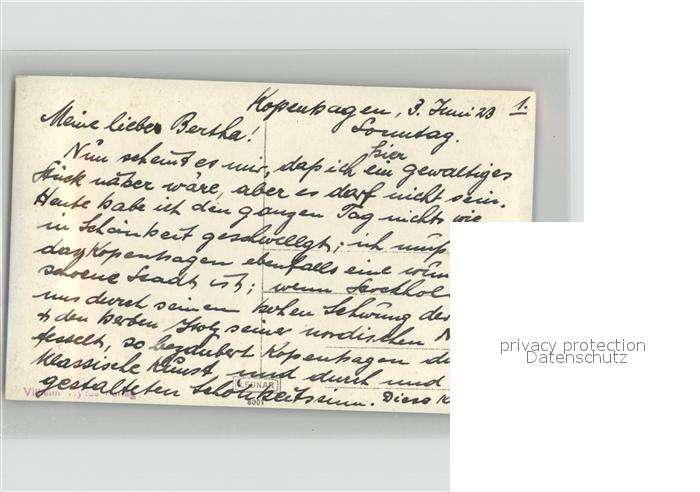 Kopenhagen, 3. Juni 23 1.
Sonntag.
Meine liebe Bertha!
hier
Nun scheint es mir, daß ich ein gewaltiges
Stück näher wäre, aber es darf nicht sein.
Heute habe ich den ganzen Tag nichts wie
in Schönheit geschwelgt; ich muß
daß Kopenhagen ebenfalls eine wun
schöne Stadt ist; wenn Stockhol
uns durch seinen hohen Schwung des
& den herben Stolz seiner nordischen N
fesselt, so bezaubert Kopenhagen du
klassische Kunst und durch und
gestalteten Schönheitssinn. Diese K
LEONAR
privacy protection
Datenschutz